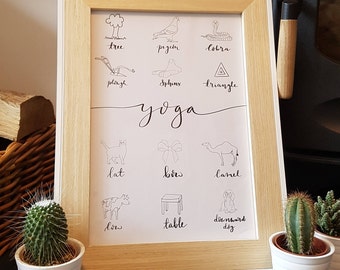 tree pigeon cobra
plough sphinx triangle
yoga
cat bow camel
cow table downward
dog